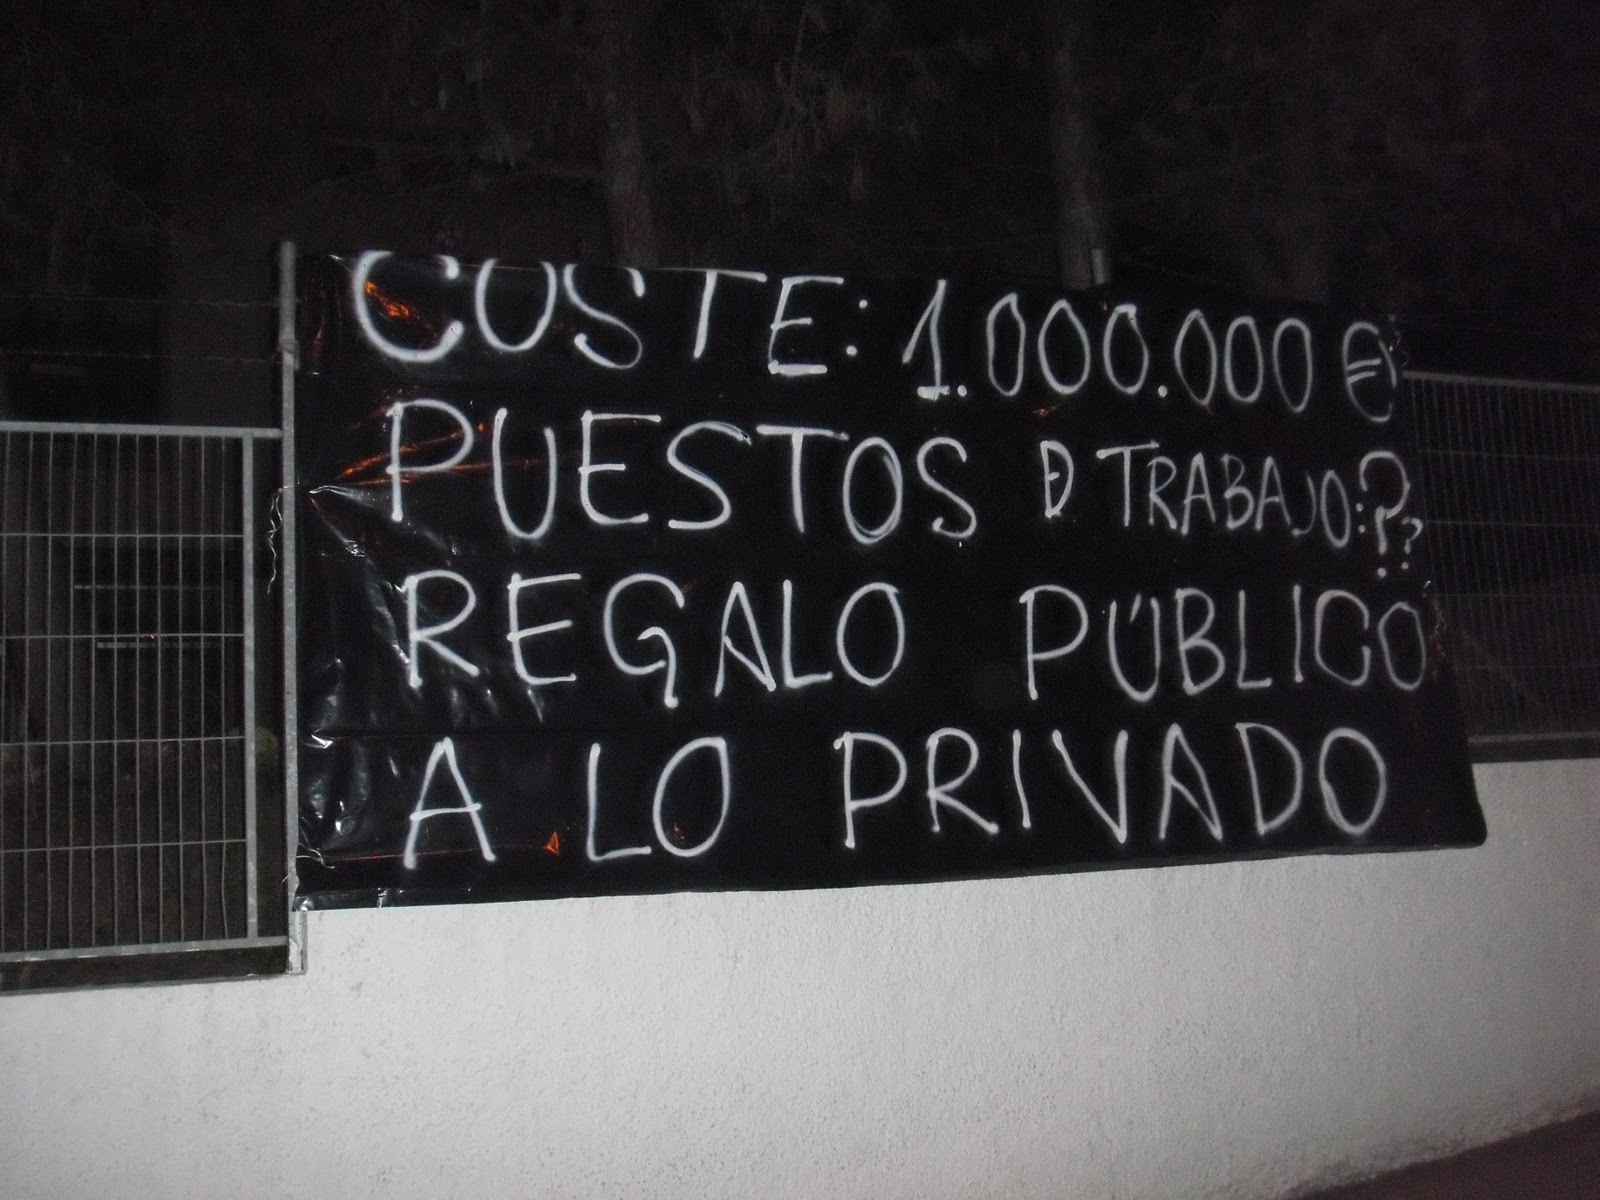 COSTE: 1.000.000 €
PUESTOS D TRABAJO:??
REGALO PÚBLICO
A LO PRIVADO